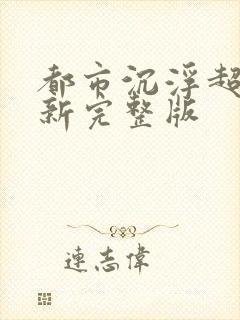 都市沉浮超
新完整版
連志偉